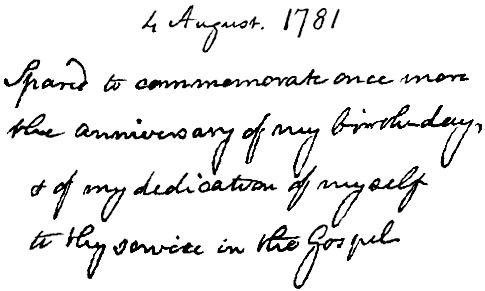 4 August. 1781
Spar'd to commemorate once more
the anniversary of my birth-day,
& of my dedication of myself
to thy service in the Gospel